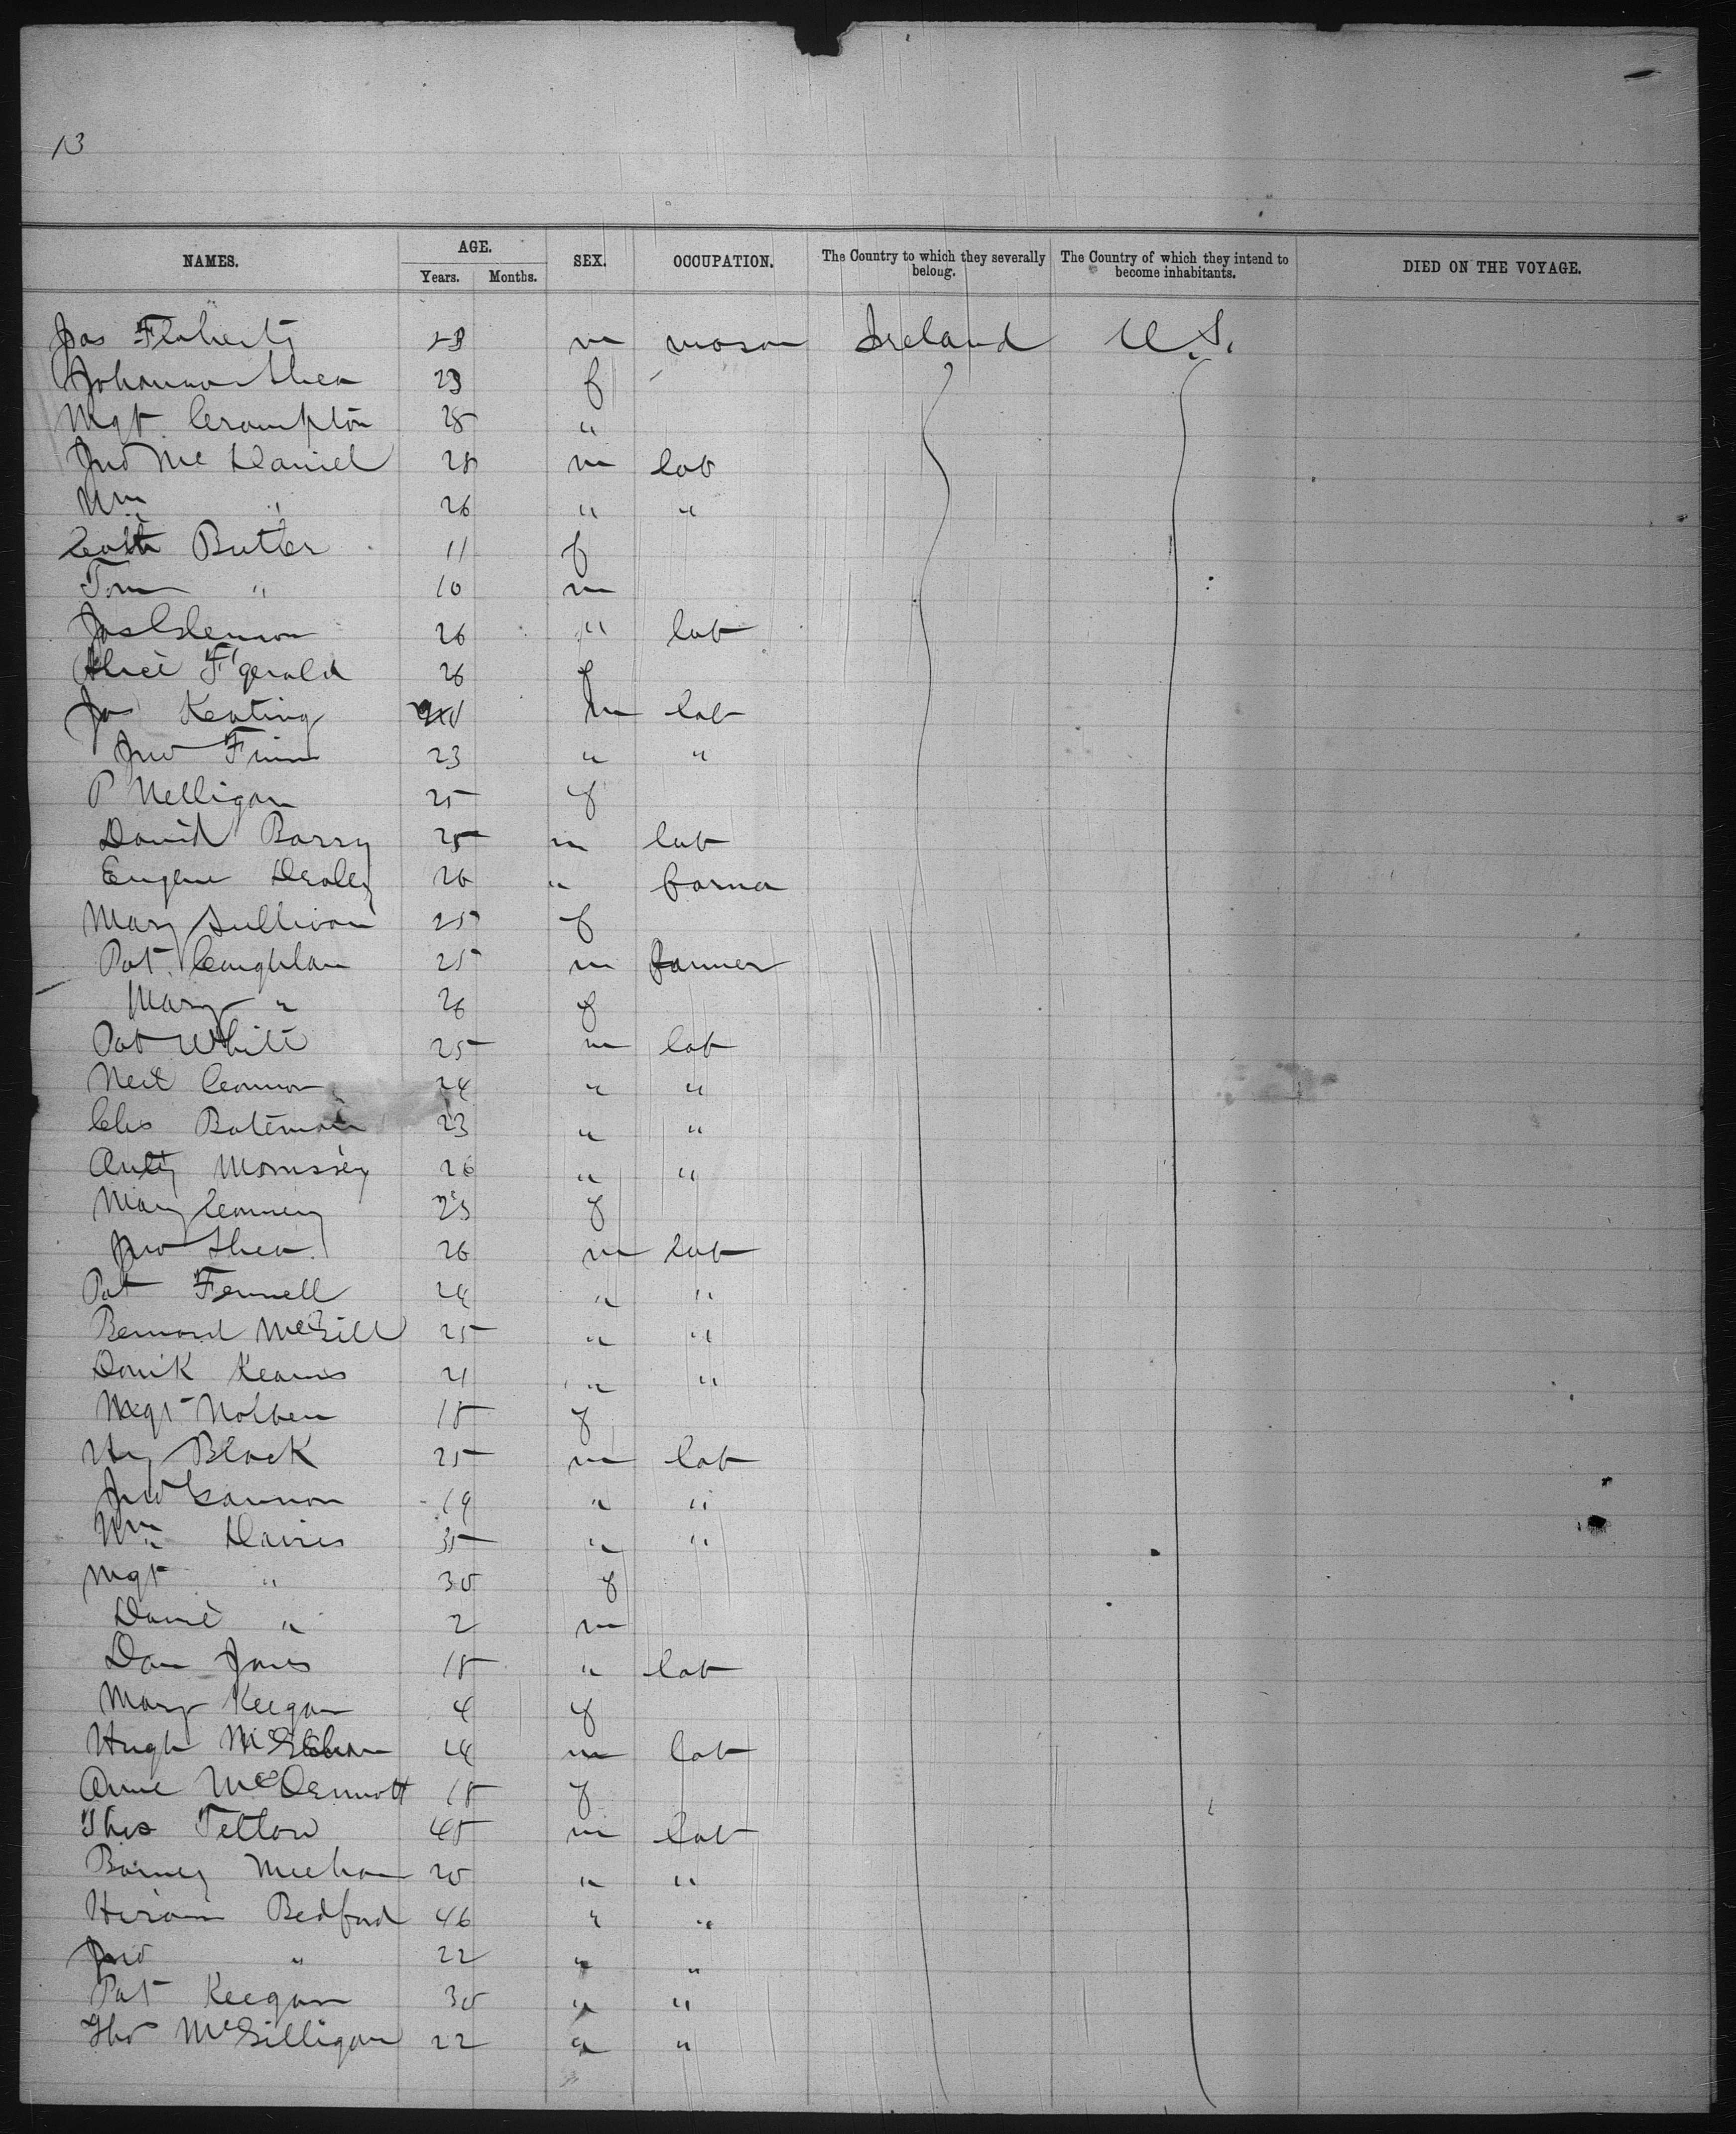 13
NAMES. AGE. SEX. OCCUPATION. The Country to which they severally belong. The Country of which they intend to become inhabitants. DIED ON THE VOYAGE.
Years. Months.
Jas Flaherty 23 m mason Ireland U.S.
Johanna Shea 23 f
Mgt Crompton 25 "
Jno McDaniel 28 m lab
Wm " 26 " "
Cath Butler 11 f
Tom " 10 m
Jas Glennon 26 " lab
Alice F'gerald 26 f
Jas Keating m lab
Jno Finn 23 " "
P Nelligan 25 f
David Barry 25 m lab
Eugene Dealey 26 " farmer
Mary Sullivan 25 f
Pat Coughlan 25 m farmer
Mary " 26 f
Pat White 25 m lab
Neil Connor 24 " "
Chs Bateman 23 " "
Anty Morrissey 26 " "
Mary Connery 23 f
Jno Shea 26 m lab
Pat Fennell 24 " "
Bernard McGill 25 " "
Domk Kearns 21 " "
Mgt 18 f
Hy Black 25 m lab
Jno Gannon 19 " "
Wm Davies 35 " "
Mgt " 30 f
David " 2 m
Dan Jones 18 " lab
Mary Keegan 4 f
Hugh 24 m lab
Anne McDermott 18 f
Thos Tetlow 45 m lab
Barney Meehan 20 " "
Hiram Bedford 46 " "
Jno " 22 " "
Pat Keegan 30 " "
Tho McGilligan 22 " "